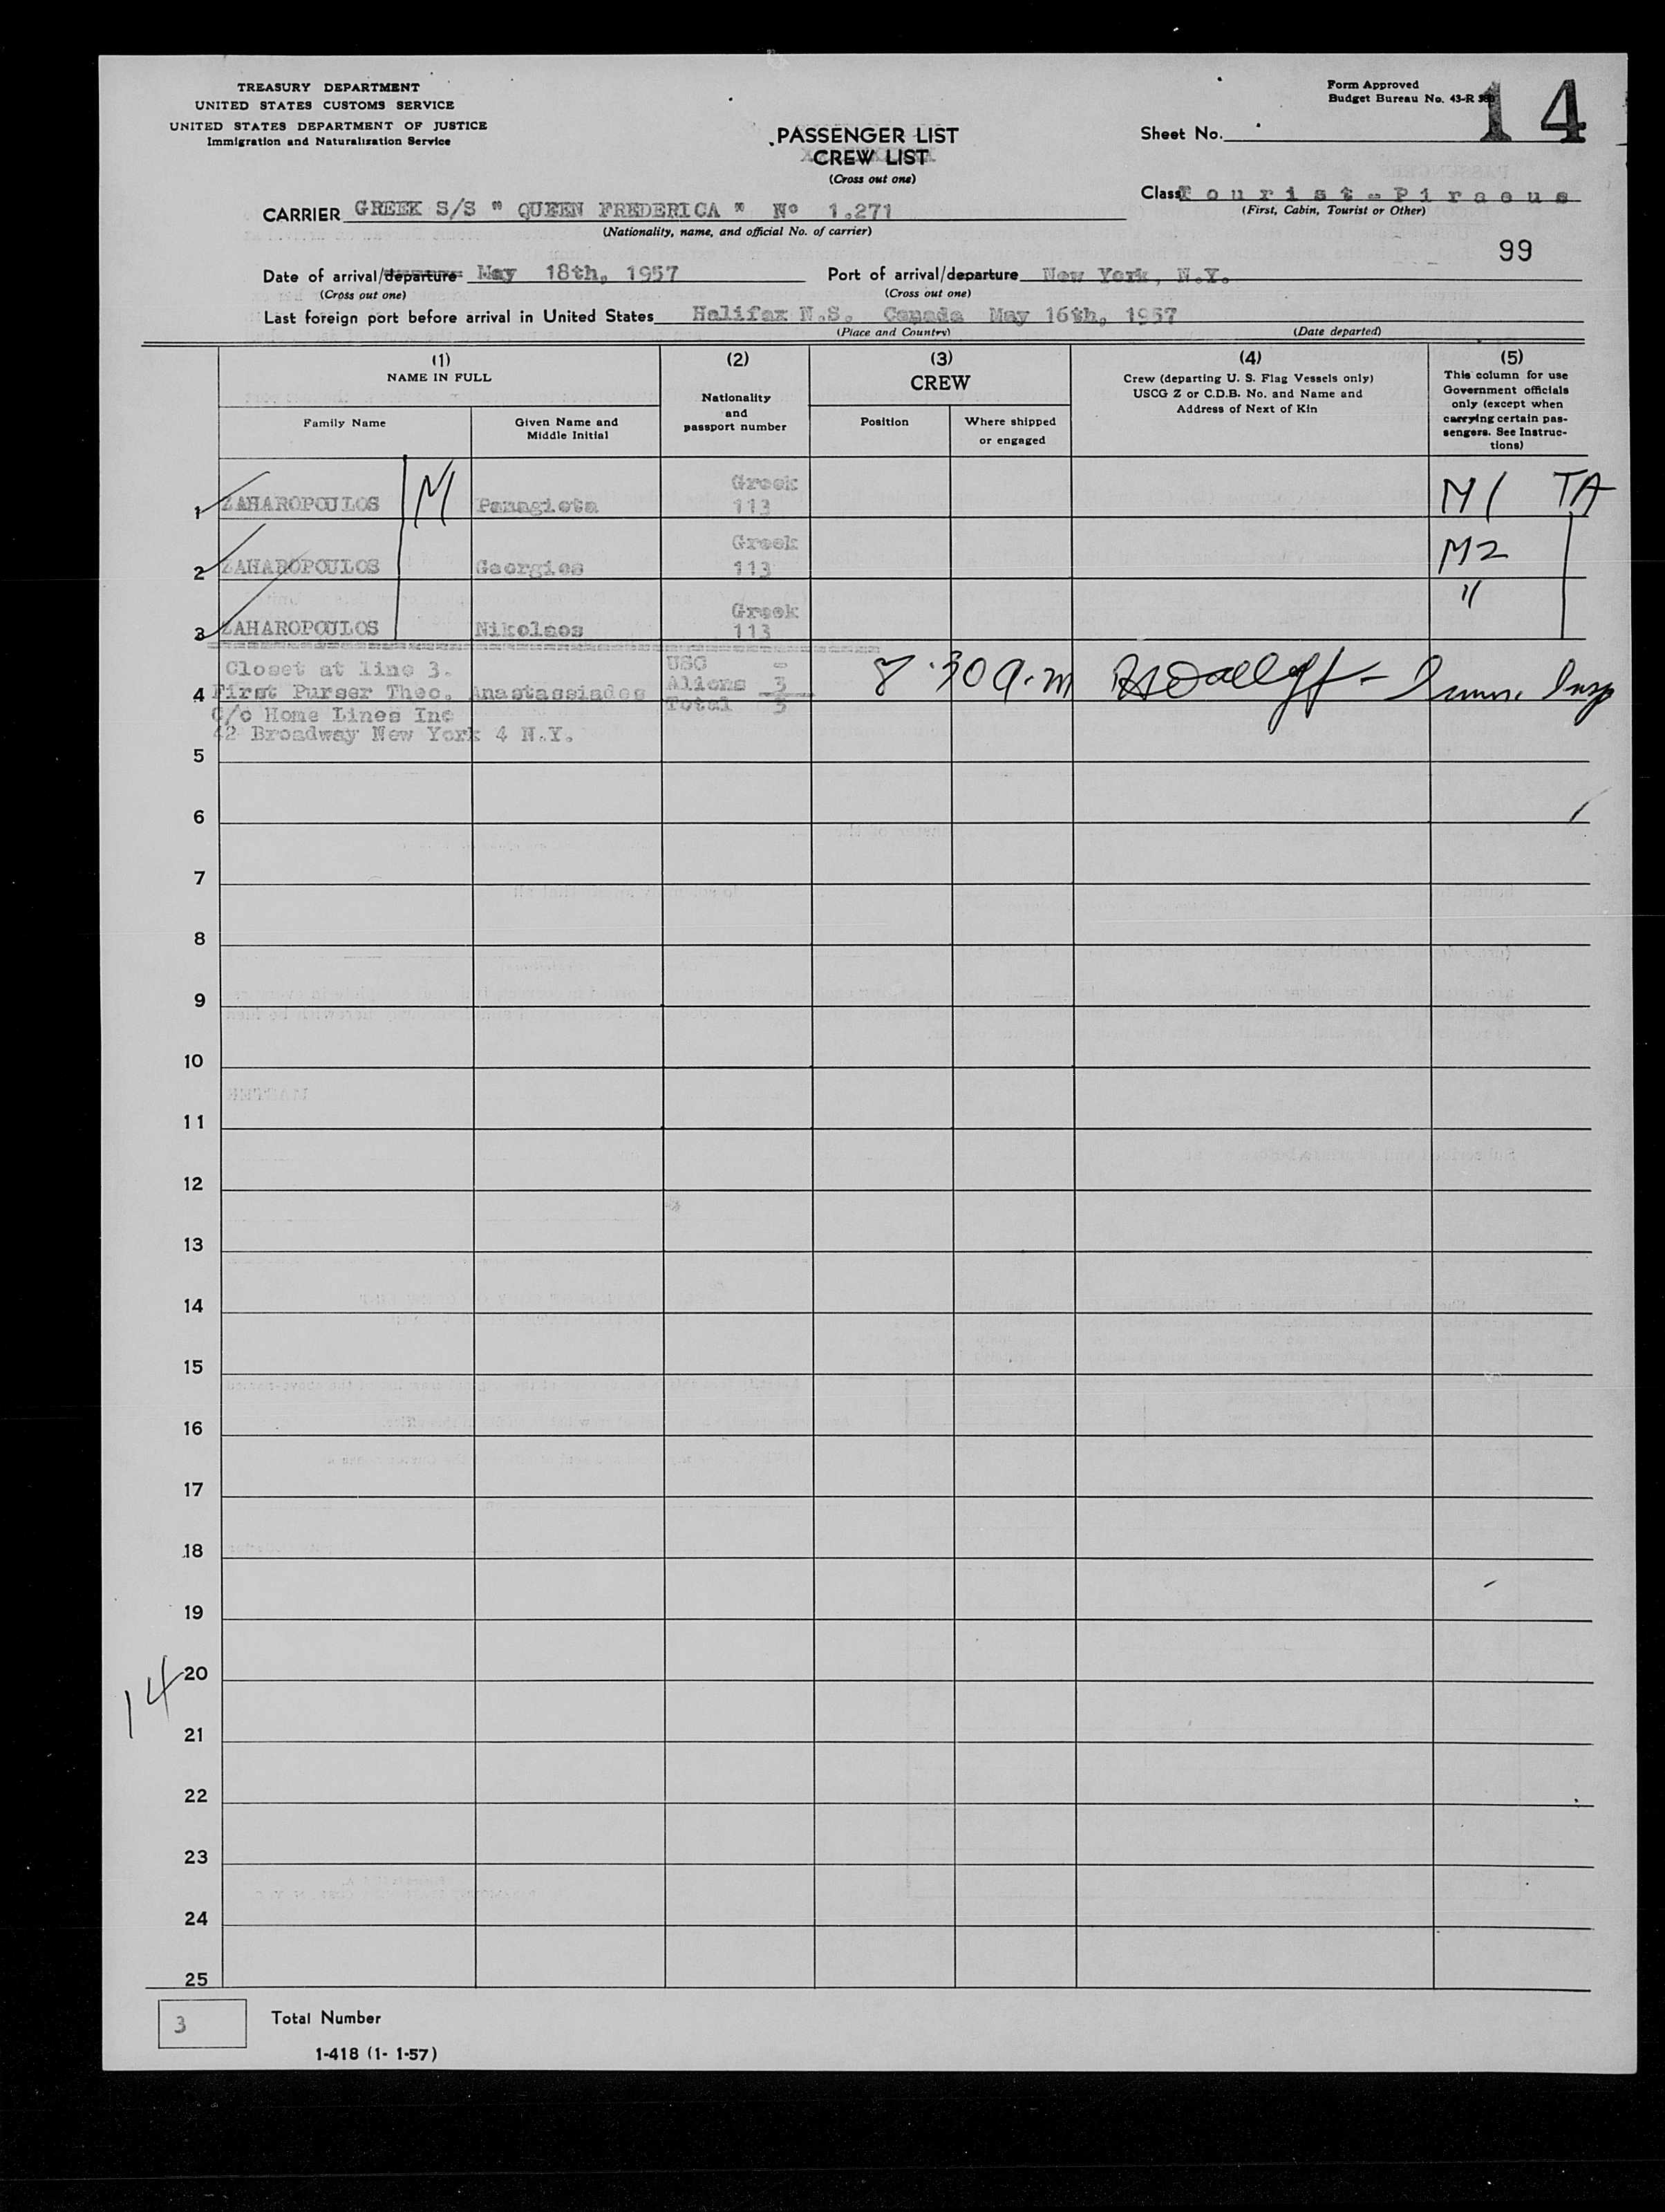 TREASURY DEPARTMENT
UNITED STATES CUSTOMS SERVICE
UNITED STATES DEPARTMENT OF JUSTICE
Immigration and Naturalization Service
Form Approved
Budget Bureau No. 43-R
14
PASSENGER LIST
CREW LIST
(Cross out one)
Sheet No.
Class Tourist - Piraeus
(First, Cabin, Tourist or Other)
CARRIER GREEK S/S " QUEEN FREDERICA " Nº 1.271
(Nationality, name, and official No. of carrier)
99
Date of arrival/departure May 18th, 1957
Port of arrival/departure New York, N.Y.
(Cross out one)
(Cross out one)
Last foreign port before arrival in United States Halifax N.S. Canada May 16th, 1957
(Place and Country)
(Date departed)
(1)
NAME IN FULL
Family Name
Given Name and
Middle Initial
(2)
Nationality
and
passport number
(3)
CREW
Position
Where shipped
or engaged
(4)
Crew (departing U. S. Flag Vessels only)
USCG Z or C.D.B. No. and Name and
Address of Next of Kin
(5)
This column for use
Government officials
only (except when
carrying certain pas-
sengers. See Instruc-
tions)
Greek
1 ZAHAROPOULOS M Panagiota 113 M1 TA
Greek
2 ZAHAROPOULOS Georgios 113 M2
Greek
3 ZAHAROPOULOS Nikolaos 113 "
Closet at line 3. USC -
4 First Purser Theo. Anastassiades Aliens 3
8.30 a.m Imm. Insp
C/o Home Lines Inc Total 3
42 Broadway New York 4 N.Y.
5
6
7
8
9
10
11
12
13
14
15
16
17
18
19
20
14
21
22
23
24
25
3 Total Number
1-418 (1- 1-57)